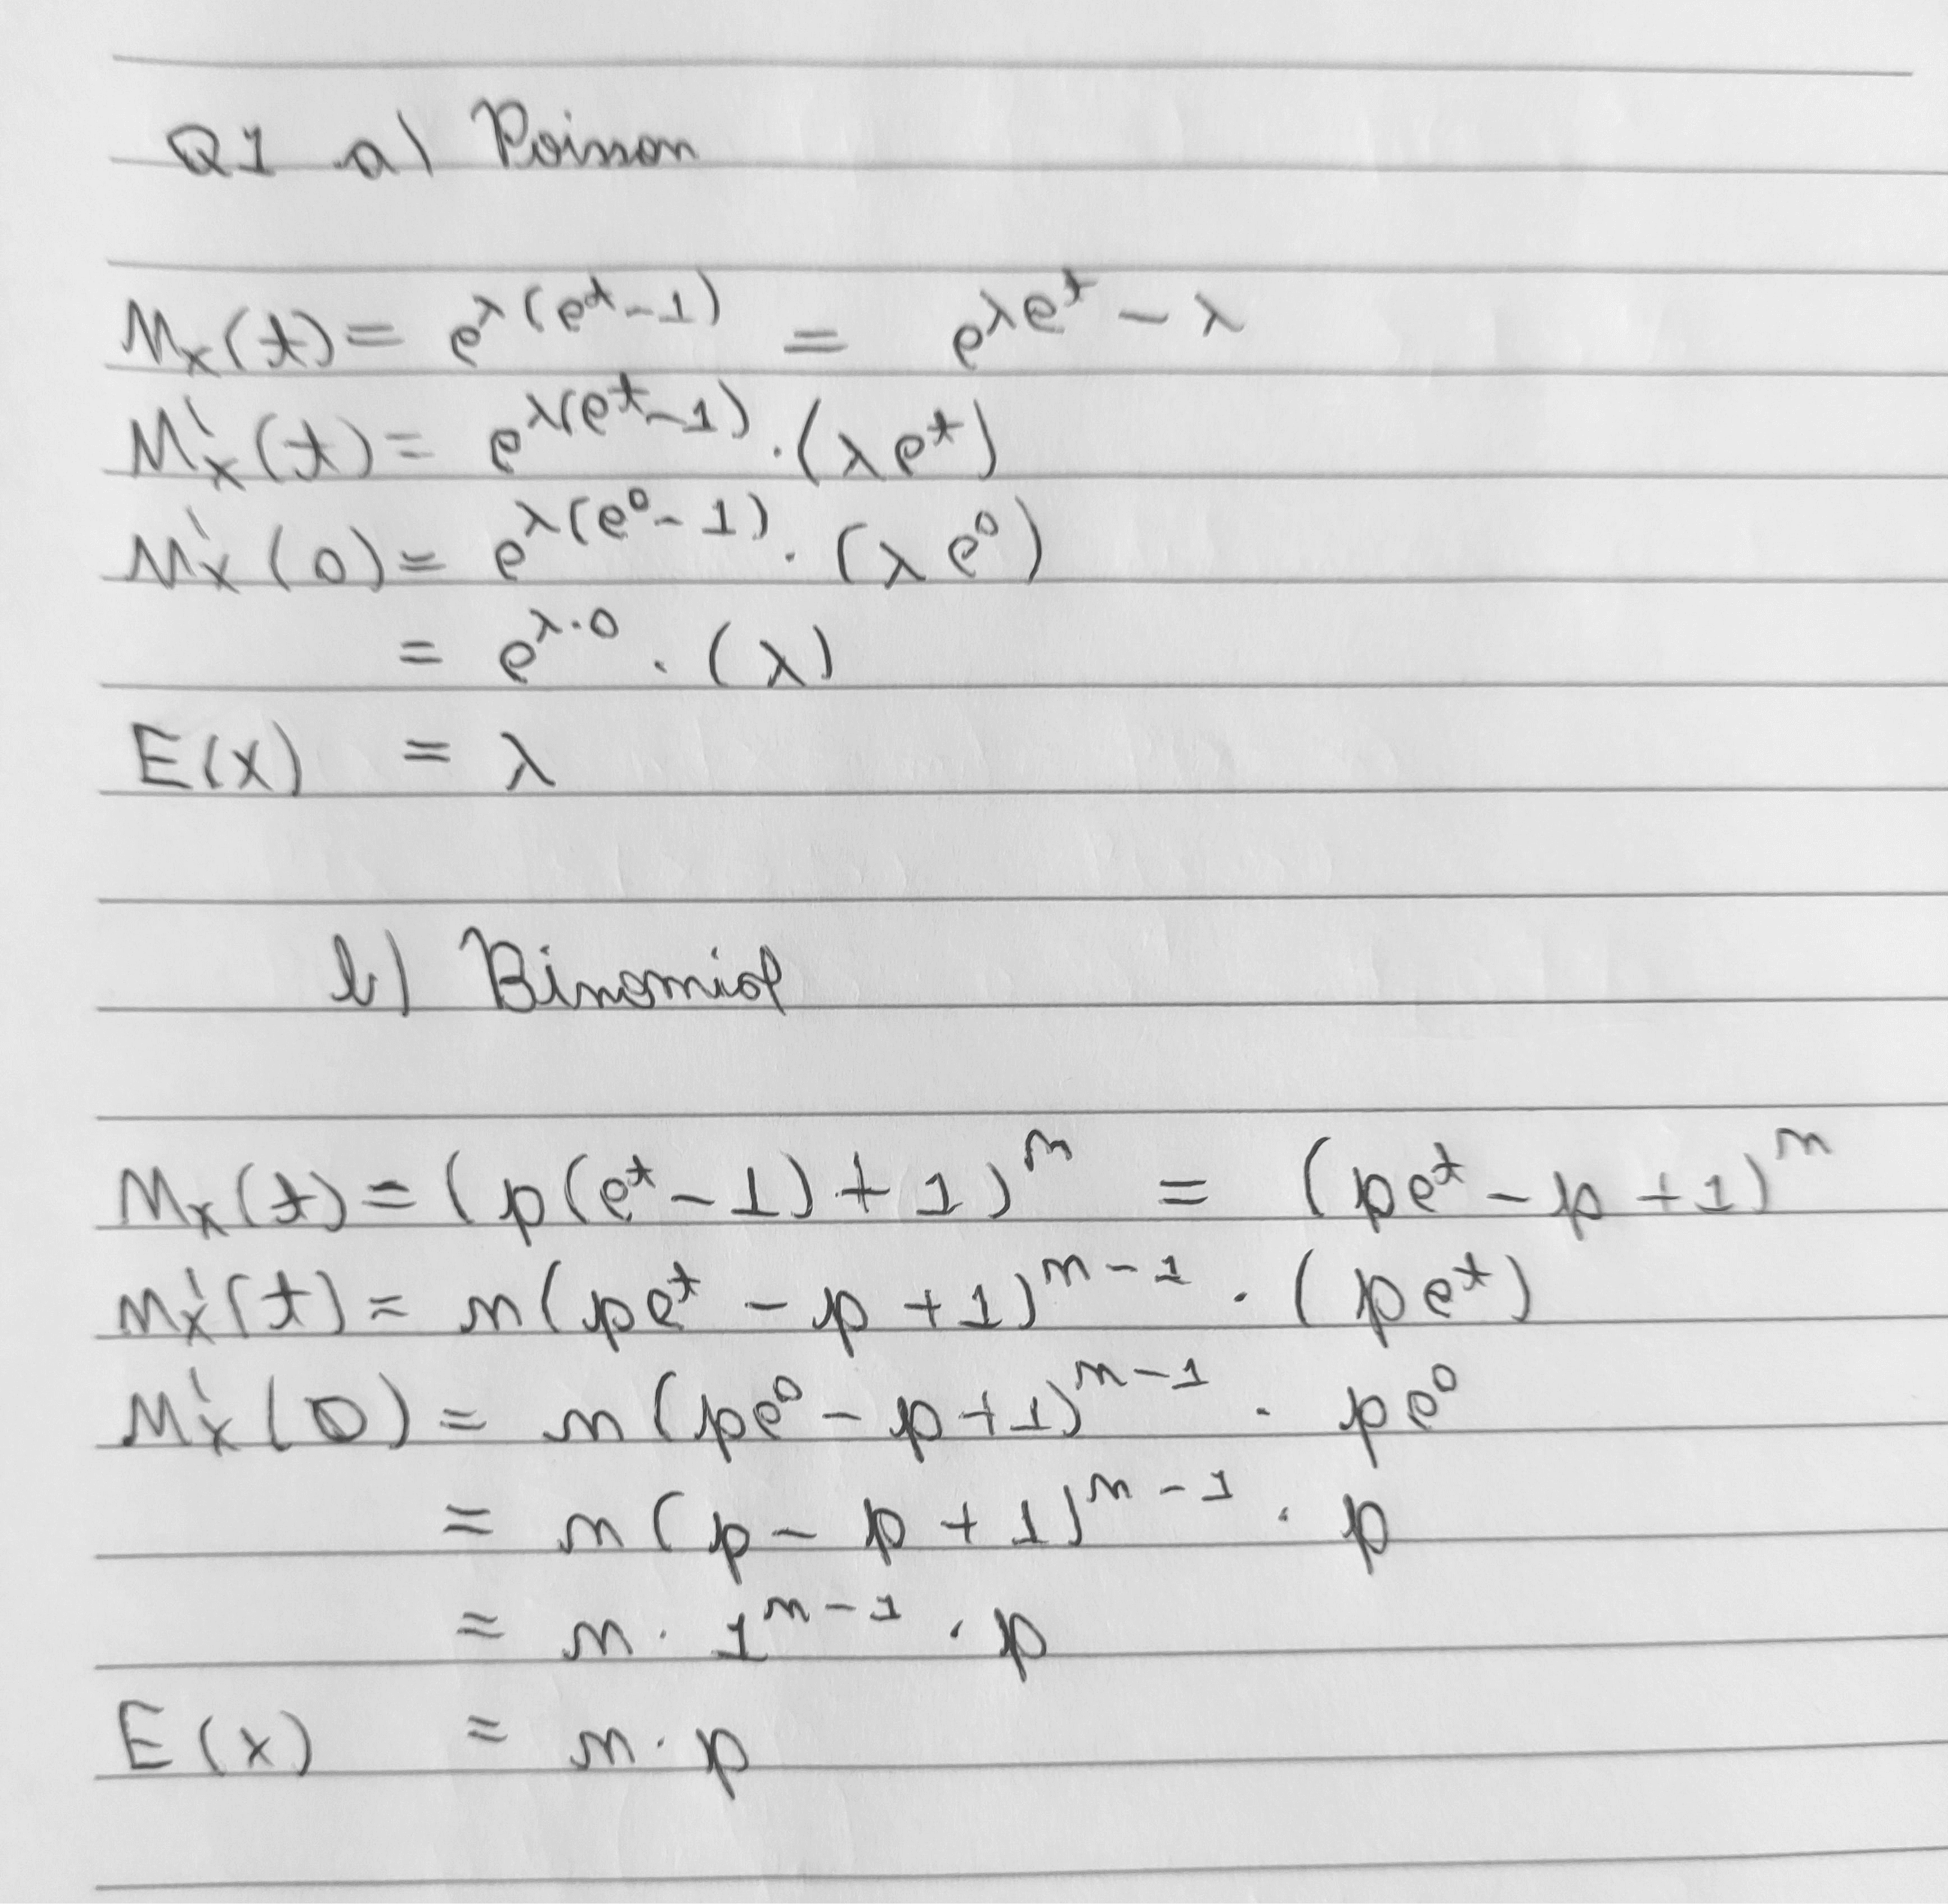 Q1 a) Poisson
Mₓ(t) = e^{λ(e^t - 1)} = e^{λe^t - λ}
M'ₓ(t) = e^{λ(e^t - 1)} · (λe^t)
M'ₓ(0) = e^{λ(e^0 - 1)} · (λe^0)
= e^{λ·0} · (λ)
E(X) = λ
b) Binomial
Mₓ(t) = (p(e^t - 1) + 1)^n = (pe^t - p + 1)^n
M'ₓ(t) = n(pe^t - p + 1)^{n-1} · (pe^t)
M'ₓ(0) = n(pe^0 - p + 1)^{n-1} · pe^0
= n(p - p + 1)^{n-1} · p
= n · 1^{n-1} · p
E(X) = n · p